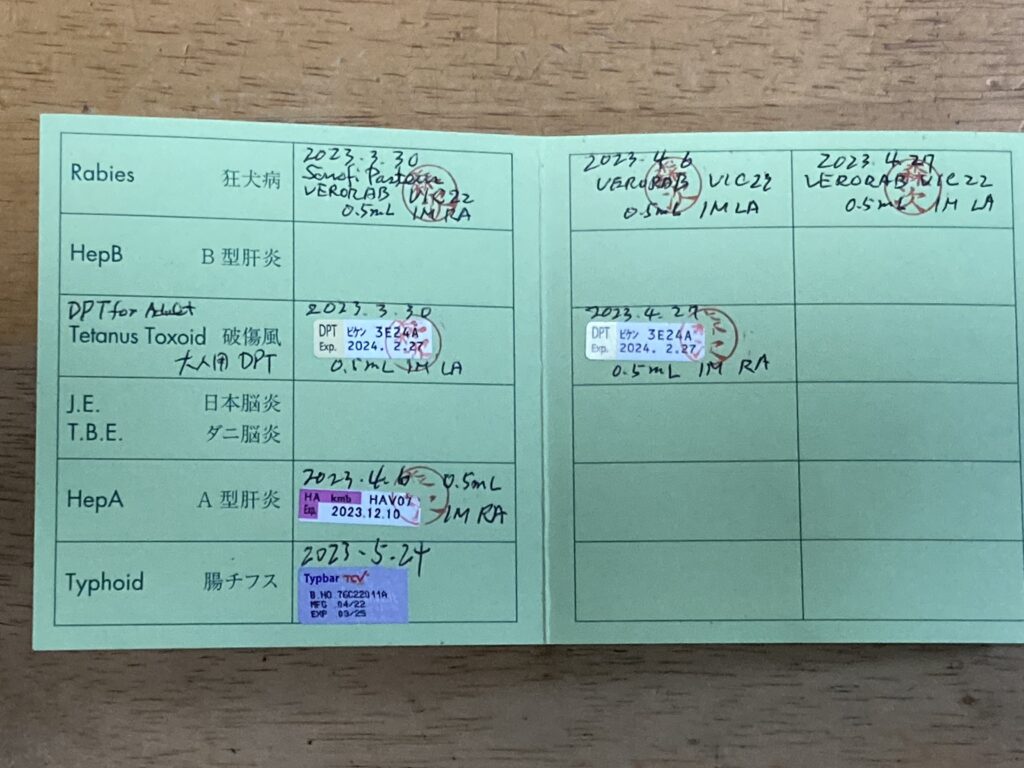 Rabies 狂犬病
2023.3.30
Sanofi Pasteur
VERORAB V1C22
0.5mL IM RA
2023.4.6
VERORAB V1C22
0.5mL IM LA
2023.4.27
VERORAB V1C22
0.5mL IM LA
HepB B型肝炎
DPT for Adult
Tetanus Toxoid 破傷風
大人用 DPT
2023.3.30
DPT ビケン 3E24A
Exp. 2024. 2.27
0.5mL IM LA
2023.4.27
DPT ビケン 3E24A
Exp. 2024. 2.27
0.5mL IM RA
J.E. 日本脳炎
T.B.E. ダニ脳炎
HepA A型肝炎
2023.4.6 0.5mL
HA kmb HAV07
Exp. 2023.12.10
IM RA
Typhoid 腸チフス
2023.5.24
Typbar TCV
B.NO.76C22011A
MFG 04/22
EXP 03/25